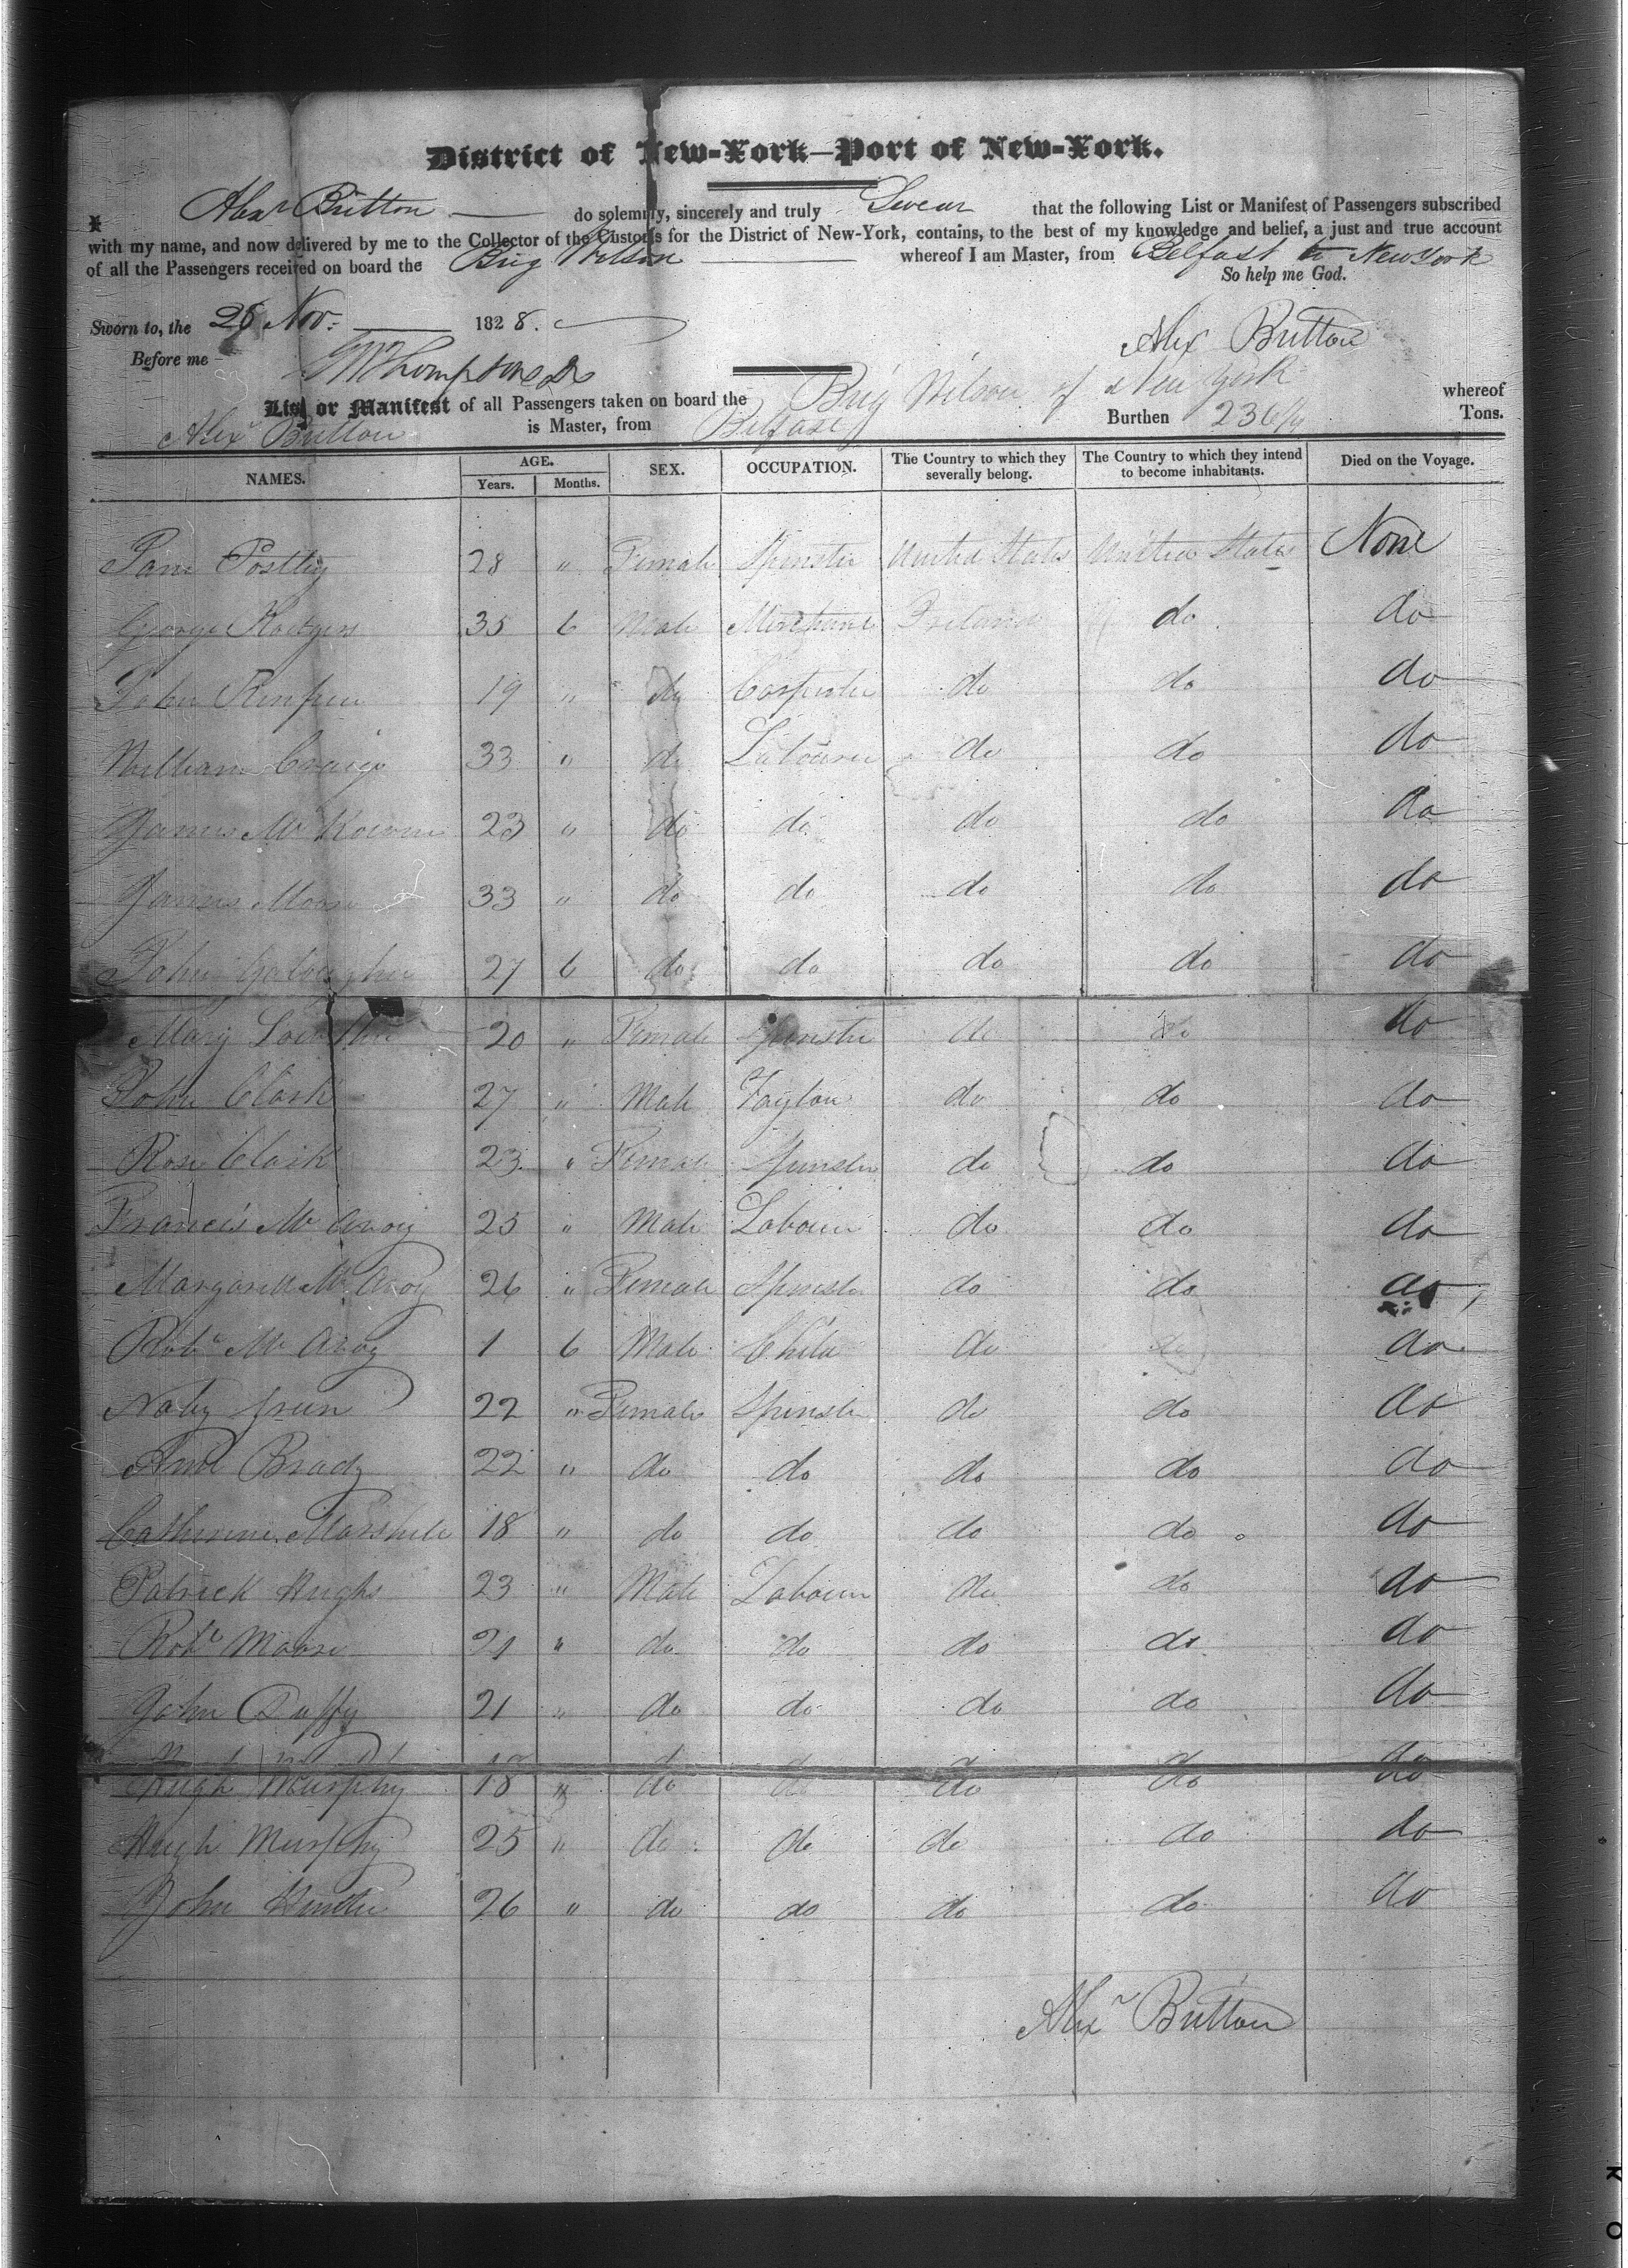 District of New-York—Port of New-York.
I, Alexr Britton do solemnly, sincerely and truly Swear that the following List or Manifest of Passengers subscribed
with my name, and now delivered by me to the Collector of the Customs for the District of New-York, contains, to the best of my knowledge and belief, a just and true account
of all the Passengers received on board the Brig Wilson whereof I am Master, from Belfast to New York
So help me God.
Sworn to, the Nov. 1828.
Before me
Alex Britton
List or Manifest of all Passengers taken on board the Brig Wilson of New York whereof
Alexr Britton is Master, from Belfast Burthen 236 Tons.
NAMES. AGE. SEX. OCCUPATION. The Country to which they severally belong. The Country to which they intend to become inhabitants. Died on the Voyage.
Years. Months.
Jane 28 " Female Spinster United States United States None
George Rodgers 35 6 Male Merchant Ireland do do
John 19 " do Carpenter do do do
William Craig 33 " do Labourer do do do
James McKown 23 " do do do do do
James Moore 33 " do do do do do
John 27 6 do do do do do
Mary 20 " Female Spinster do do do
John Clark 27 " Male Taylor do do do
Rose Clark 23 " Female Spinster do do do
Francis McAvoy 25 " Male Labourer do do do
Margarett McAvoy 26 " Female Spinster do do do
Robt McAvoy 1 6 Male Child do do do
22 " Female Spinster do do do
Ann Brady 22 " do do do do do
Catherine Marshall 18 " do do do do do
Patrick Hughs 23 " Male Labourer do do do
Robt Moore 21 " do do do do do
John Duffy 21 " do do do do do
Hugh Murphy 18 " do do do do do
Hugh Murphy 25 " do do do do do
John Hunter 26 " do do do do do
Alexr Britton
K O